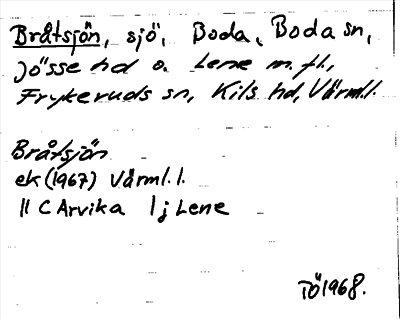 Bråtsjön, sjö, Boda, Boda sn,
Jösse hd o. Lene m. fl.,
Frykeruds sn, Kils hd, Värml.l.
Bråtsjön
ek (1967) Värml.l.
11 C Arvika 1 j Lene
TÖ 1968.